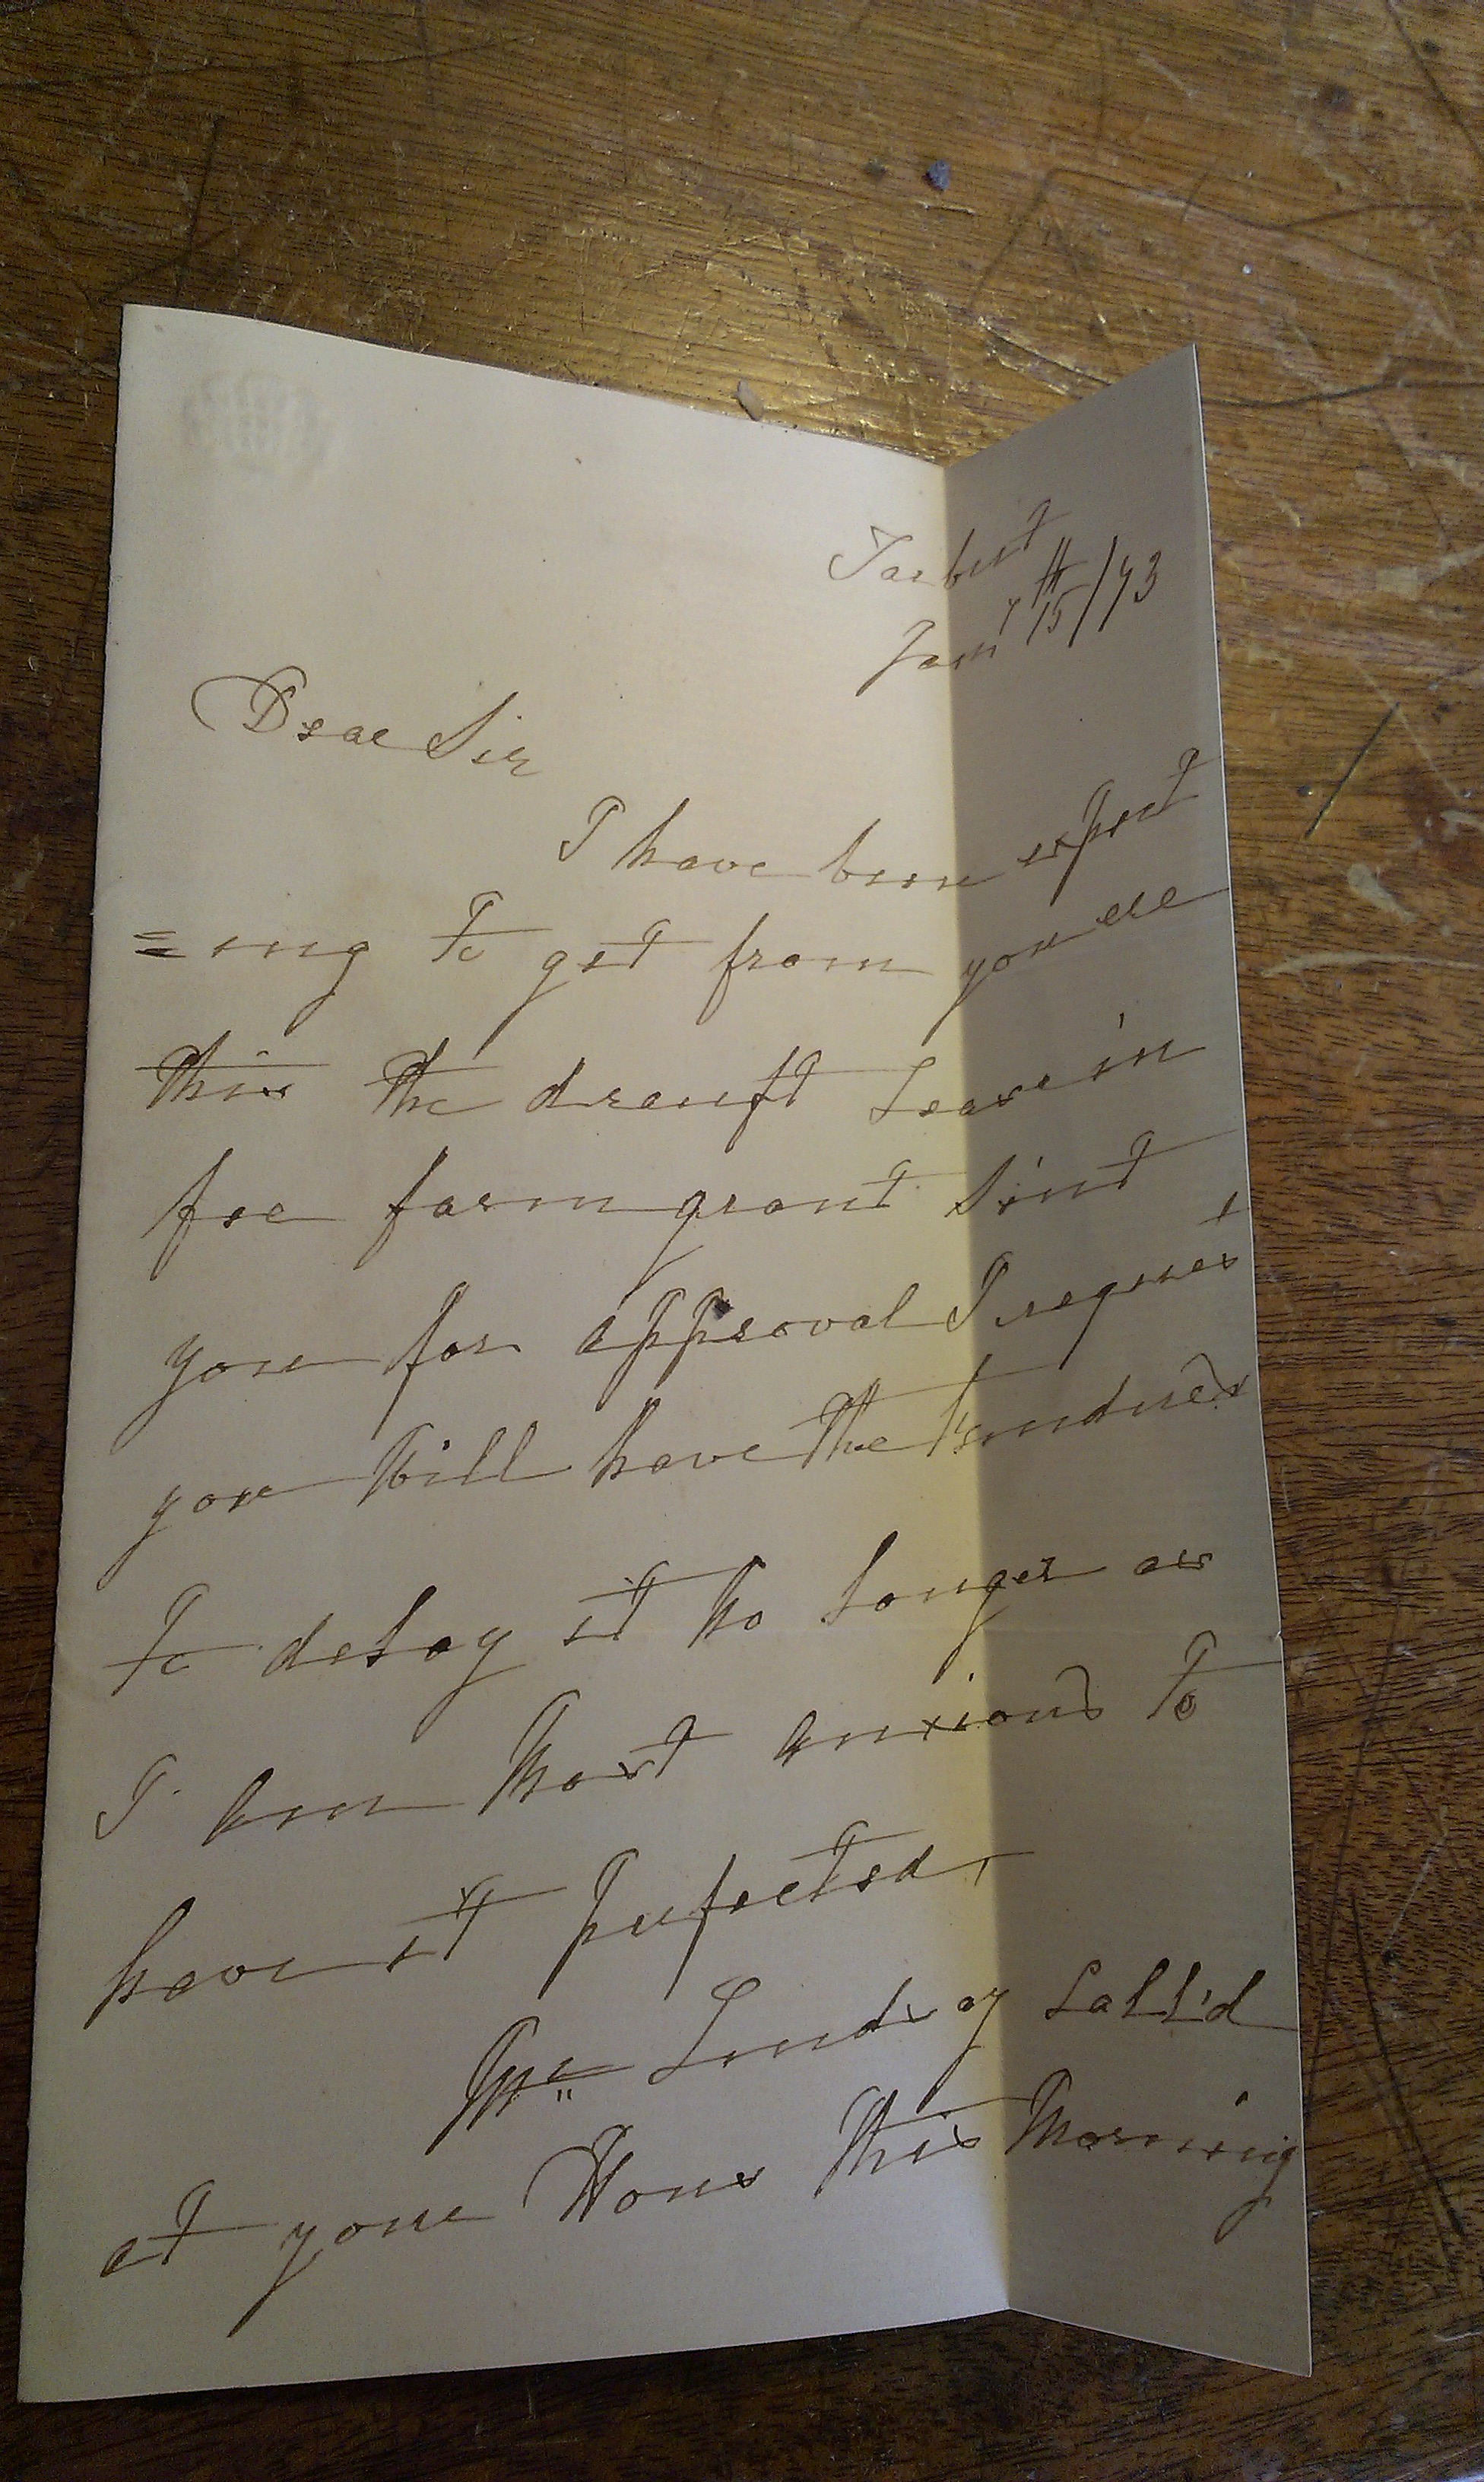 Tarbert
Jany 15th/73
Dear Sir
I have been expect
=ing to get from you ere
this the drauft Lease in
fee farm grant Sent
you for approval I request
you will have the kindness
to delay it no longer as
I am most anxious to
have it perfected.
Mr Lindsay Call'd
at your House this Morning